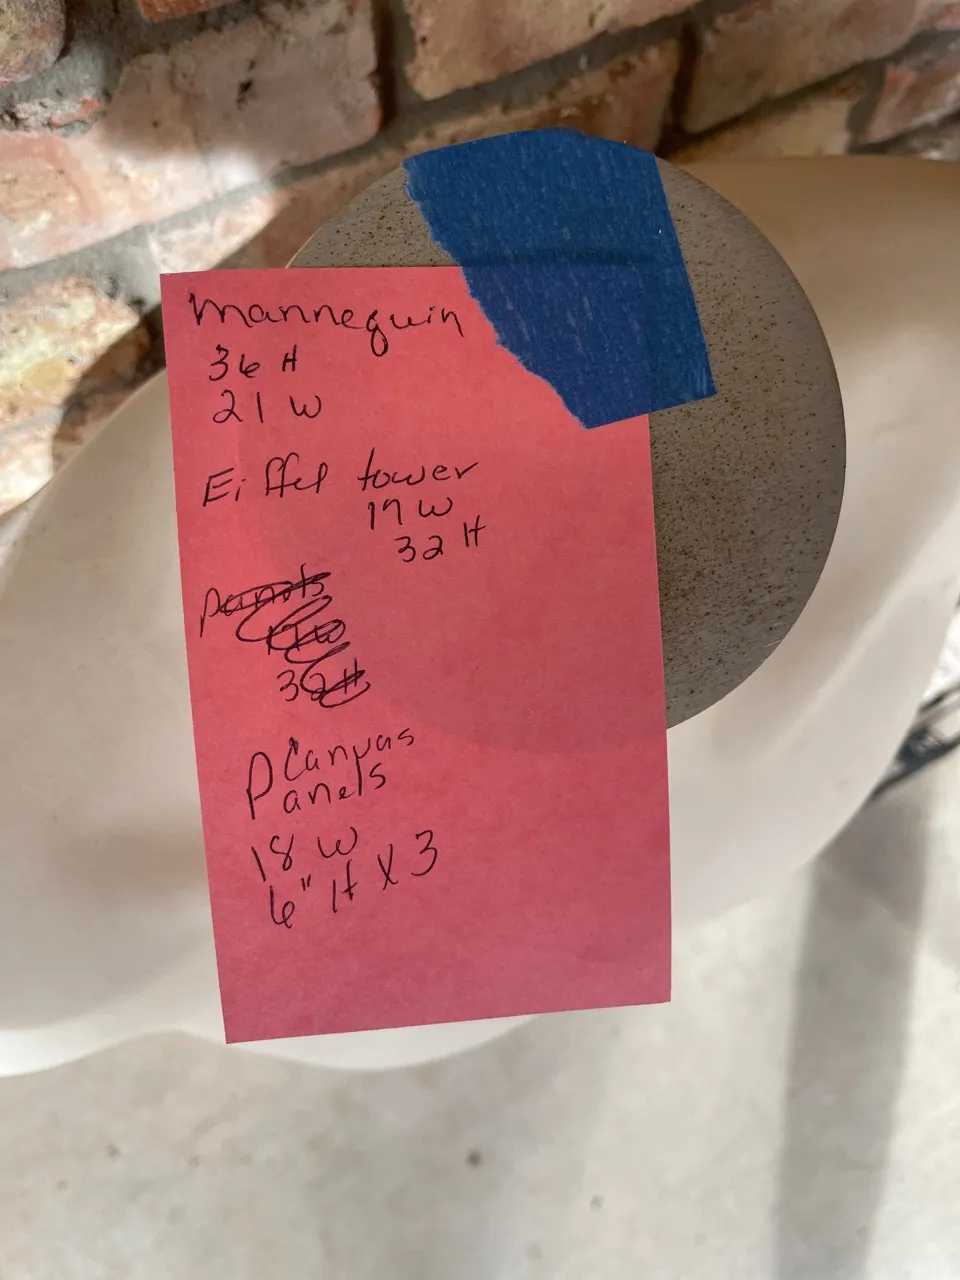 Mannequin
36 H
21 W
Eiffel tower
17 W
32 H
Canvas
Panels
18 W
6" H X 3